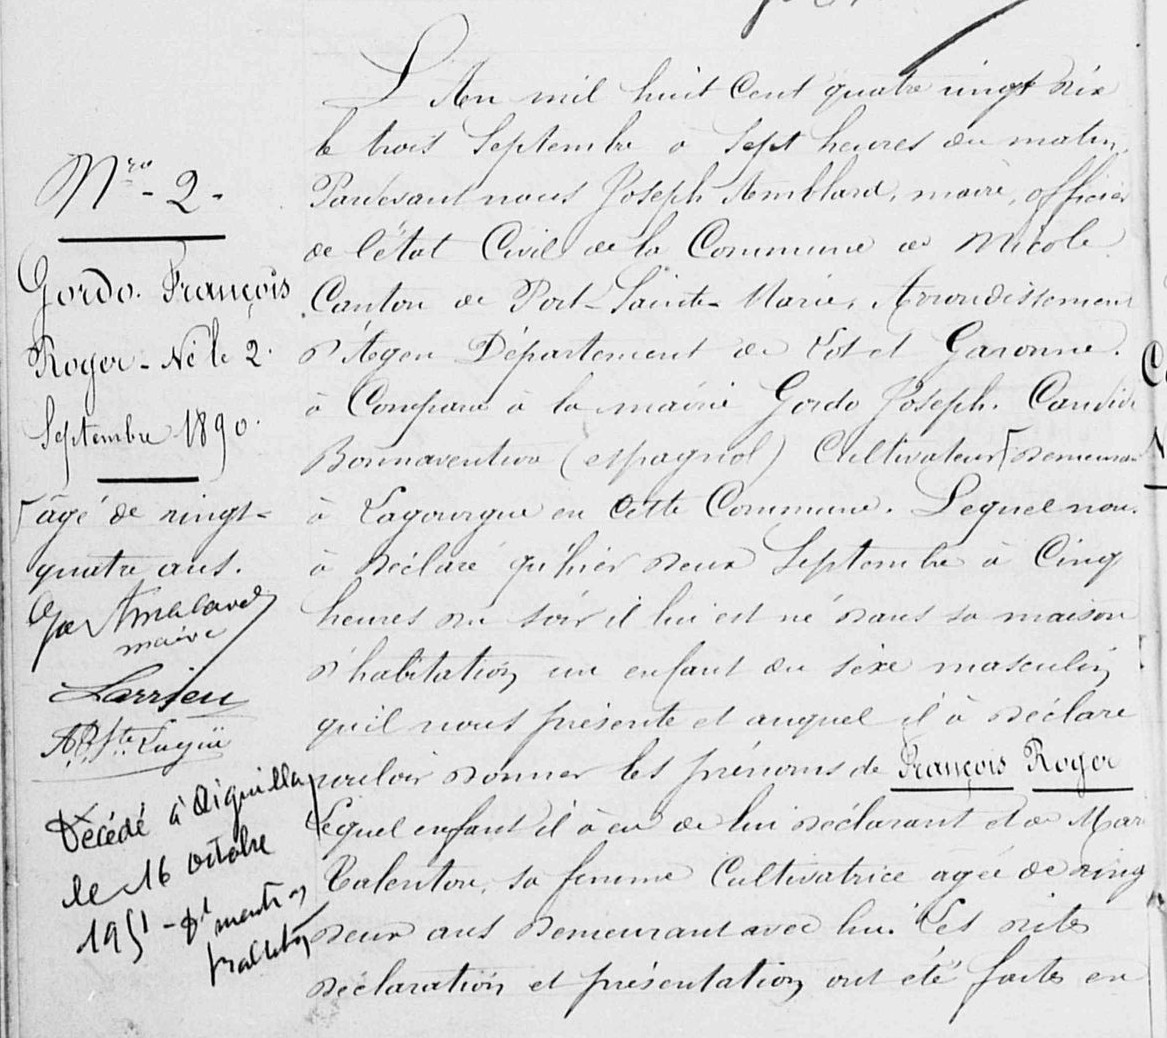 Nro - 2 -
Gordo. François
Roger - Né le 2
Septembre 1890.
âgé de vingt-
quatre ans.
maire
Larrieu
Décédé à Aiguillon
le 16 octobre
1951 -
L'An mil huit Cent quatre vingt dix
le trois Septembre à Sept heures du matin.
Pardevant nous Joseph Amblard, maire, officier
de l'état Civil de la Commune de Nicole
Canton de Port-Sainte-Marie, Arrondissement
d'Agen Département de Lot et Garonne.
à Comparu à la mairie Gordo Joseph. Candide
Bonnaventura (espagnol) Cultivateur demeurant
à Lagourgue en Cette Commune. Lequel nous
à déclaré qu'hier deux Septembre à Cinq
heures du soir il lui est né dans sa maison
d'habitation un enfant du sexe masculin
qu'il nous présente et auquel il à déclaré
vouloir donner les prénoms de François Roger
Lequel enfant il à eu de lui déclarant et de Marie
Talenton, sa femme Cultivatrice agée de vingt
deux ans demeurant avec lui. Les dites
déclaration et présentation ont été faites en